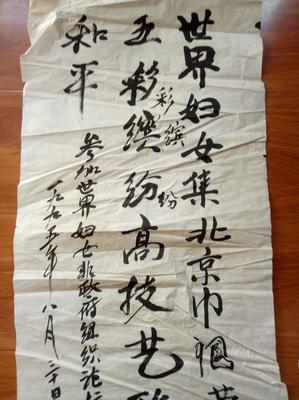 世界妇女集北京巾帼
彩缤纷
五彩缤纷高技艺
和平
参加世界妇女非政府组织论
一九九五年八月二十日